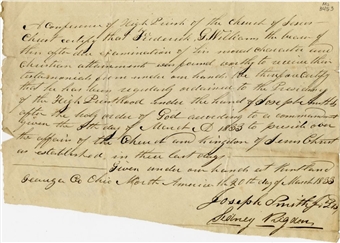 A Conference of High Priests of the Church of Jesus
Christ certify that Frederick G Williams the bearer of
this after due examination of his moral character and
Christian attainments was found worthy to receive this
testimonial from under our hands We therefore certify
that he has been regularly ordained to the Presidency
of the High Priesthood under the hand of Joseph Smith Jr
after the holy order of God according to a commandment
given the 8th day of March AD 1833 to preside over
the affairs of the Church and Kingdom of Jesus Christ
as established in these last days
Given under our hands at Kirtland
Geauga Co Ohio North America the 20th day of March 1833
Joseph Smith Jr
Sidney Rigdon